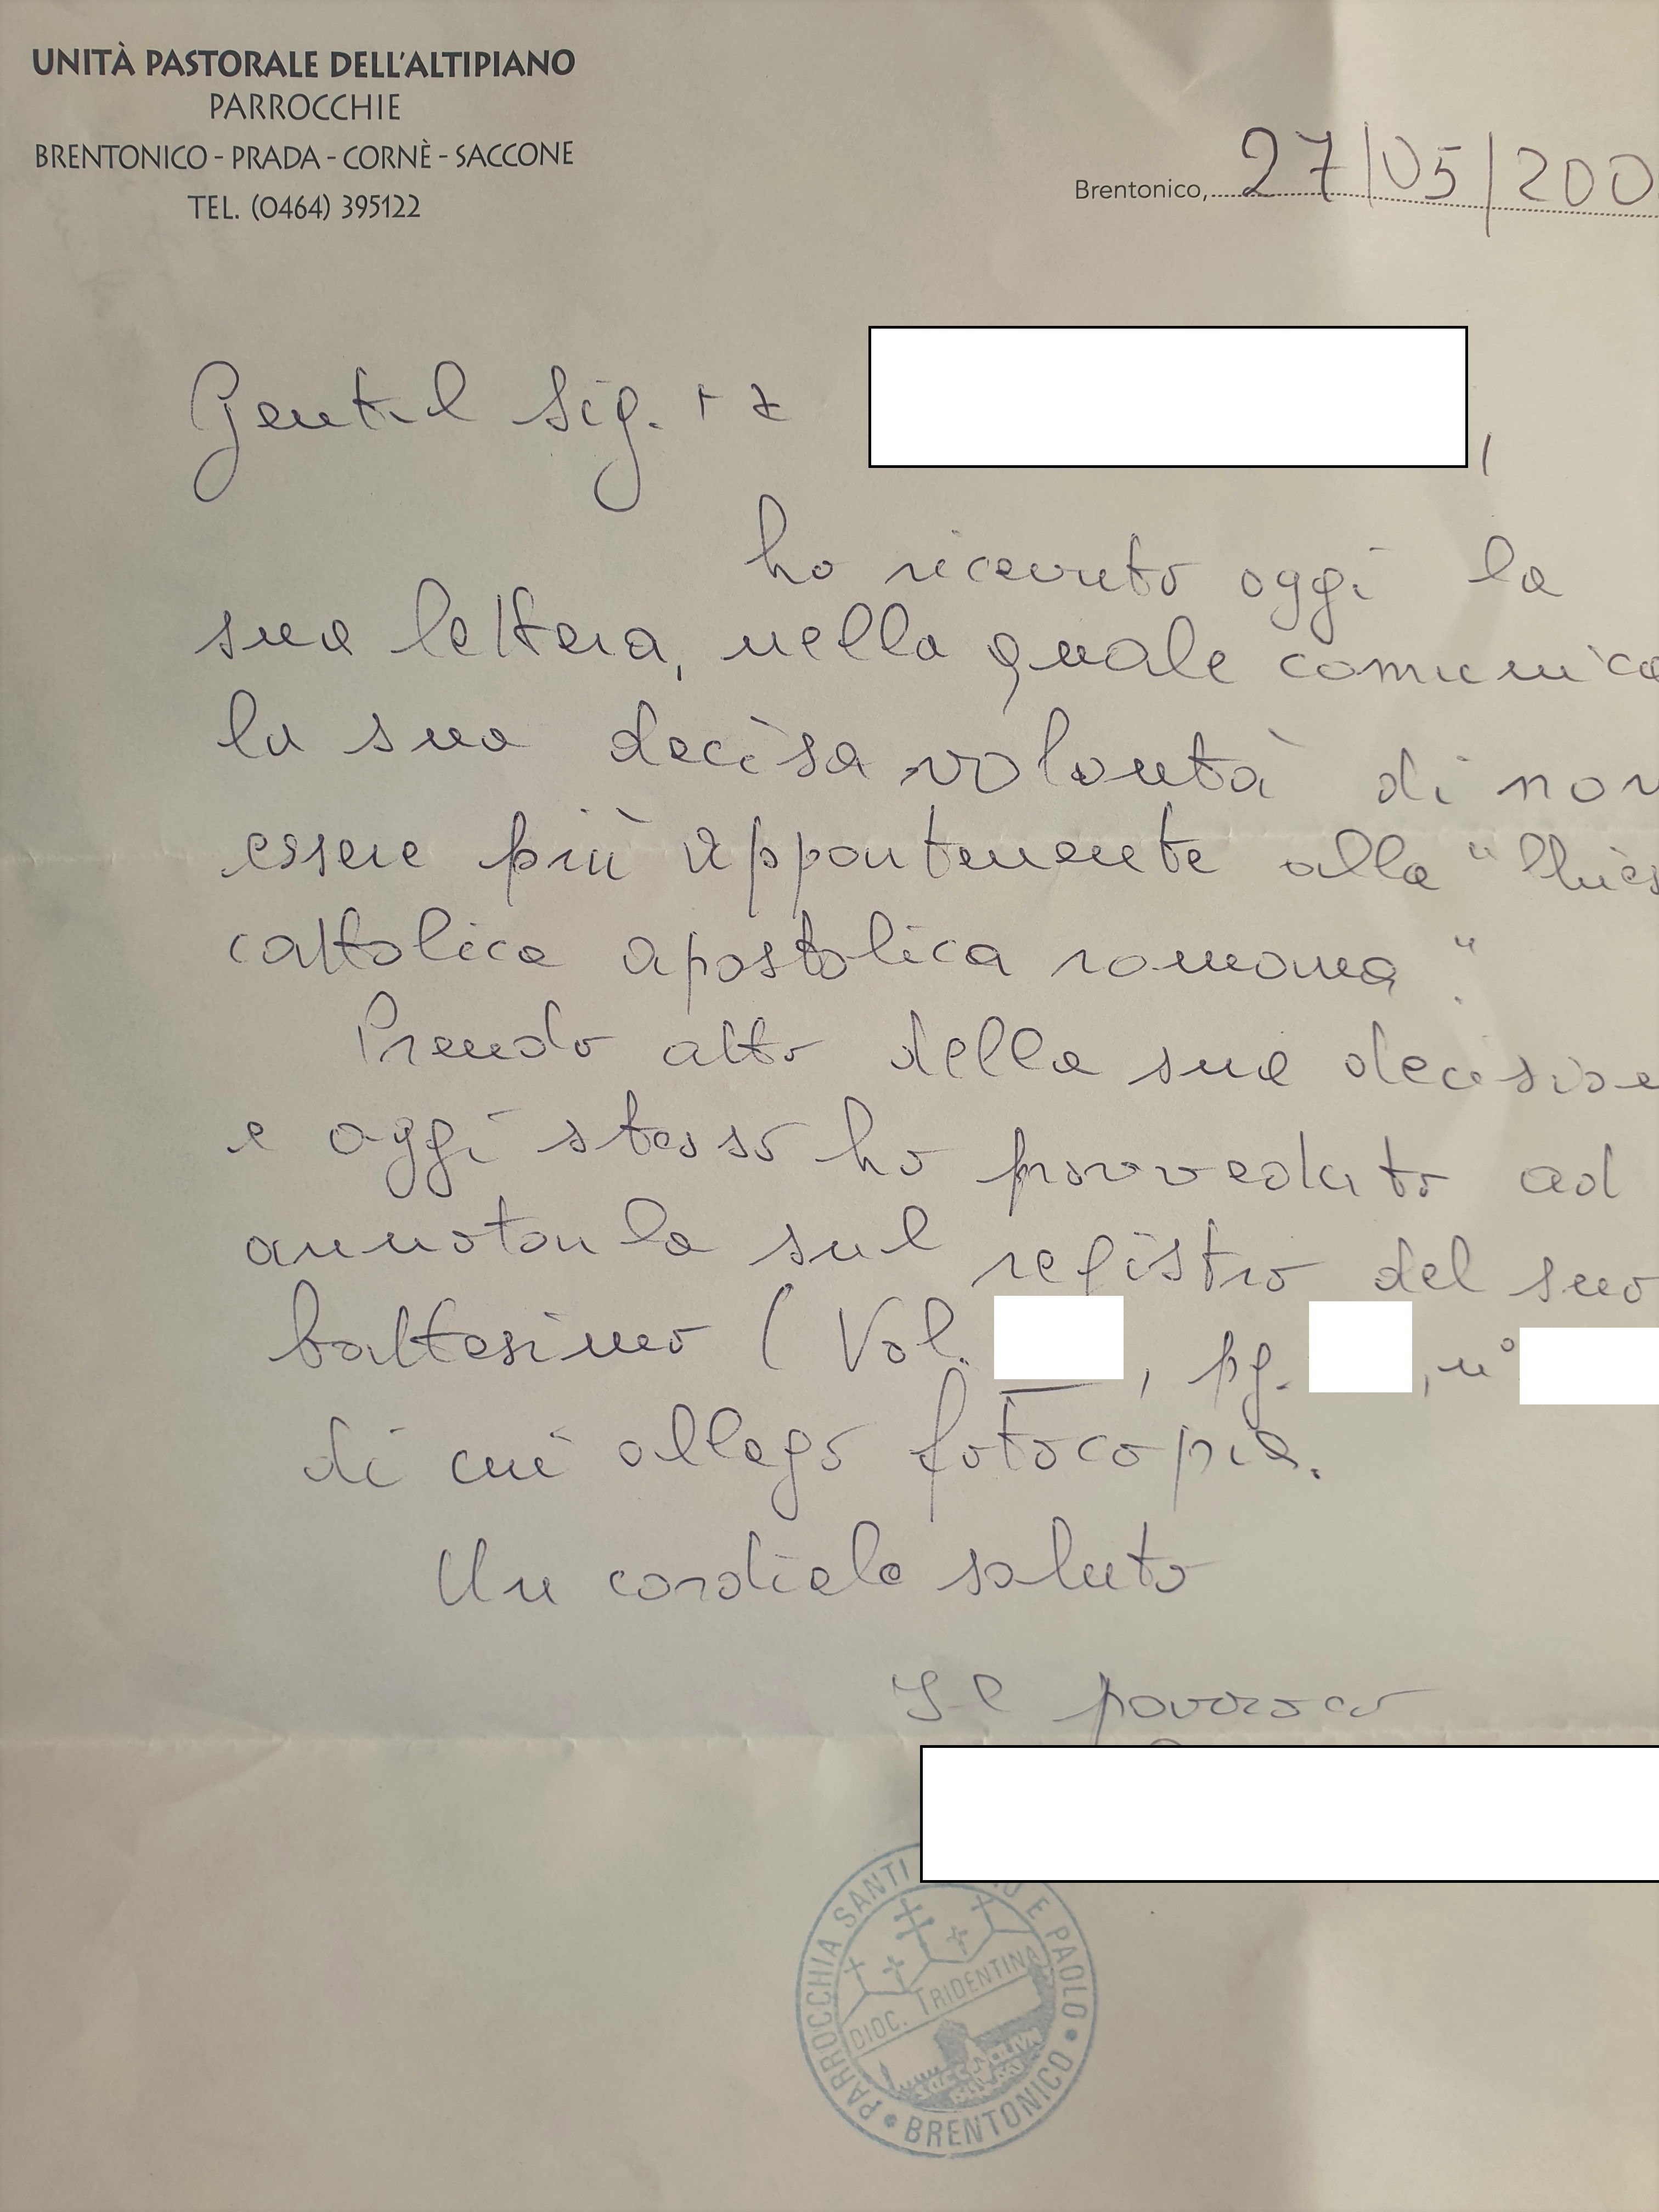 UNITÀ PASTORALE DELL'ALTIPIANO
PARROCCHIE
BRENTONICO - PRADA - CORNÈ - SACCONE
TEL. (0464) 395122
Brentonico, 27/05/200
Gentil Sig.ra ,
ho ricevuto oggi la
sua lettera, nella quale comunica
la sua decisa volontà di non
essere più appartenente alla "Chies
cattolica apostolica romana".
Prendo atto della sua decisione
e oggi stesso ho provveduto ad
annotarla sul registro del suo
battesimo ( Vol. , pg. , n°
di cui allego fotocopia.
Un cordiale saluto
Il parroco
PARROCCHIA SANTI E PAOLO • BRENTONICO •
DIOC. TRIDENTINA